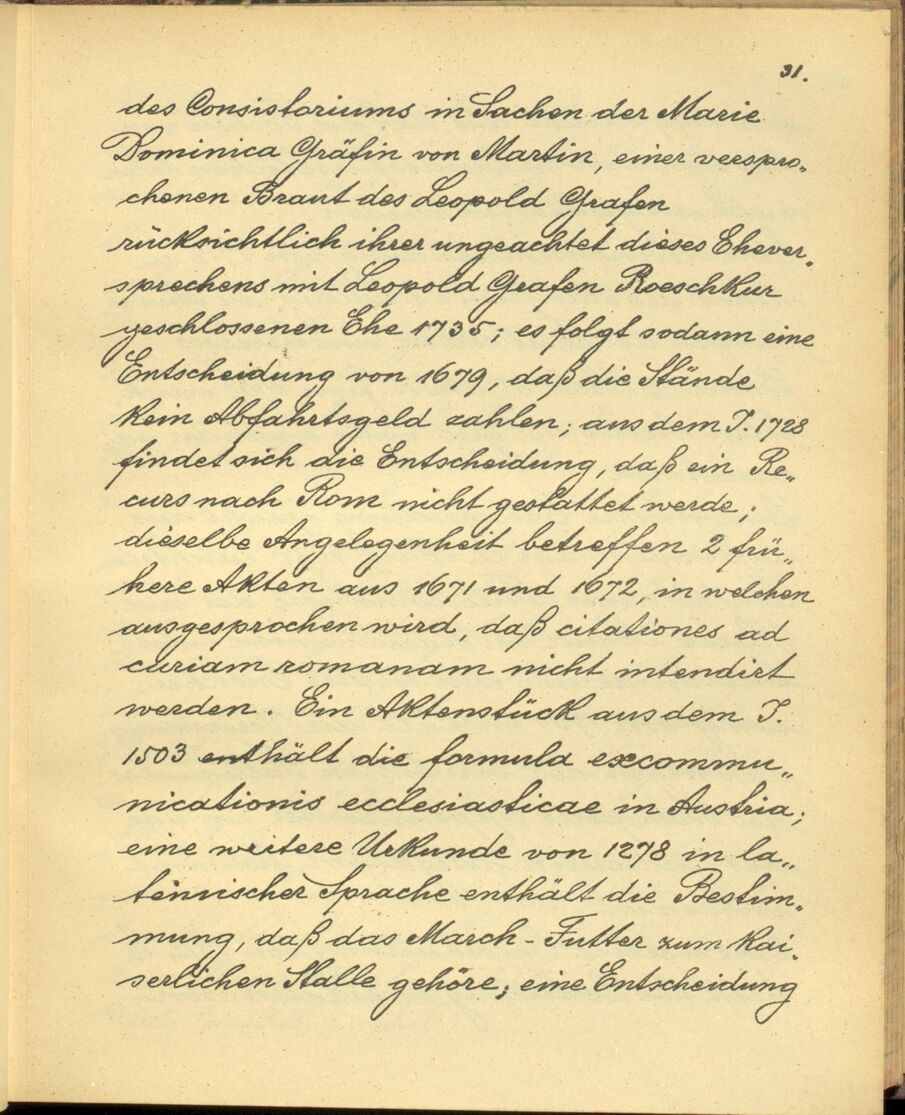 31.
des Consistoriums in Sachen der Marie
Dominica Gräfin von Martin, einer verspro„
chenen Braut des Leopold Grafen
rücksichtlich ihrer ungeachtet dieses Ehever„
sprechens mit Leopold Grafen Roeschkur
geschlossenen Ehe 1735; es folgt sodann eine
Entscheidung von 1679, daß die Stände
kein Abfahrtsgeld zahlen; aus dem J. 1728
findet sich die Entscheidung, daß ein Re„
curs nach Rom nicht gestattet werde;
dieselbe Angelegenheit betreffen 2 frü„
here Akten aus 1671 und 1672, in welchen
ausgesprochen wird, daß citationes ad
curiam romanam nicht intendirt
werden. Ein Aktenstück aus dem J.
1503 enthält die formula excommu„
nicationis ecclesiasticae in Austria;
eine weitere Urkunde von 1278 in la„
teinischer Sprache enthält die Bestim„
mung, daß das March-Futter zum kai„
serlichen Stalle gehöre; eine Entscheidung